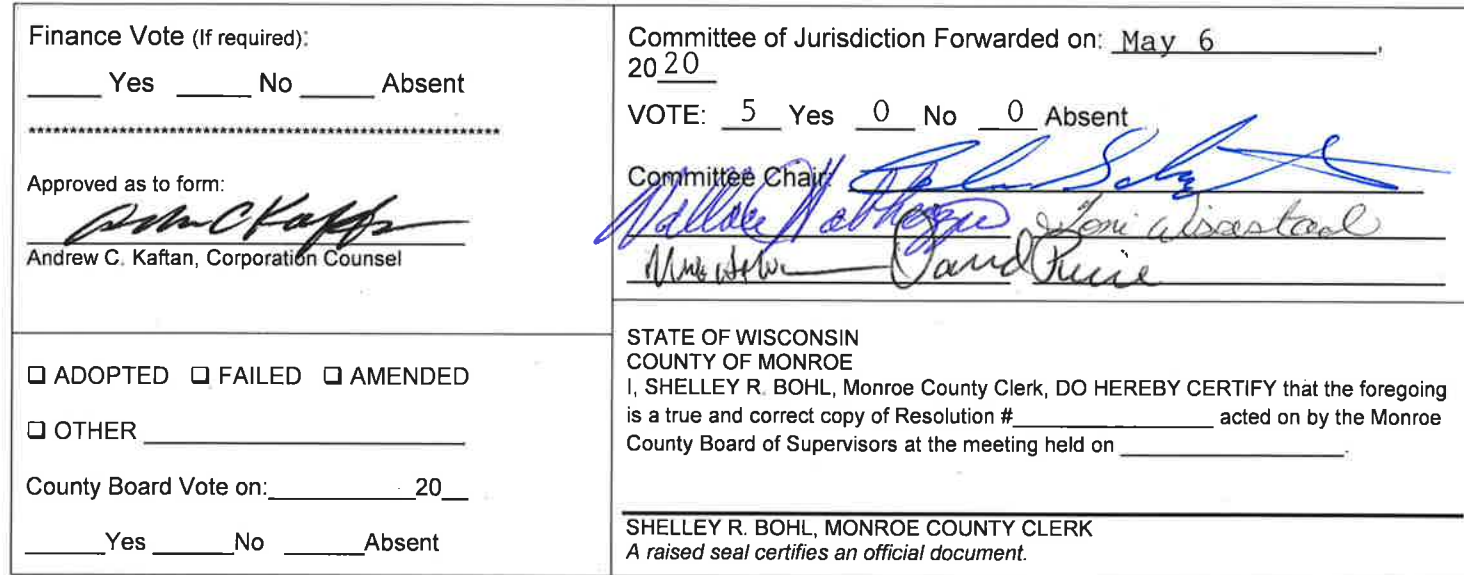 Finance Vote (If required):
_____ Yes _____ No _____ Absent
*********************************************************
Approved as to form:
Andrew C. Kaftan, Corporation Counsel
❑ ADOPTED ❑ FAILED ❑ AMENDED
❑ OTHER ______________________
County Board Vote on:__________ 20__
_____Yes _____No _____Absent
Committee of Jurisdiction Forwarded on: May 6,
2020
VOTE: 5 Yes 0 No 0 Absent
Committee Chair:
Wallace Habhegger Toni Wissestad
David Pierce
STATE OF WISCONSIN
COUNTY OF MONROE
I, SHELLEY R. BOHL, Monroe County Clerk, DO HEREBY CERTIFY that the foregoing
is a true and correct copy of Resolution #________________ acted on by the Monroe
County Board of Supervisors at the meeting held on ________________.
SHELLEY R. BOHL, MONROE COUNTY CLERK
A raised seal certifies an official document.